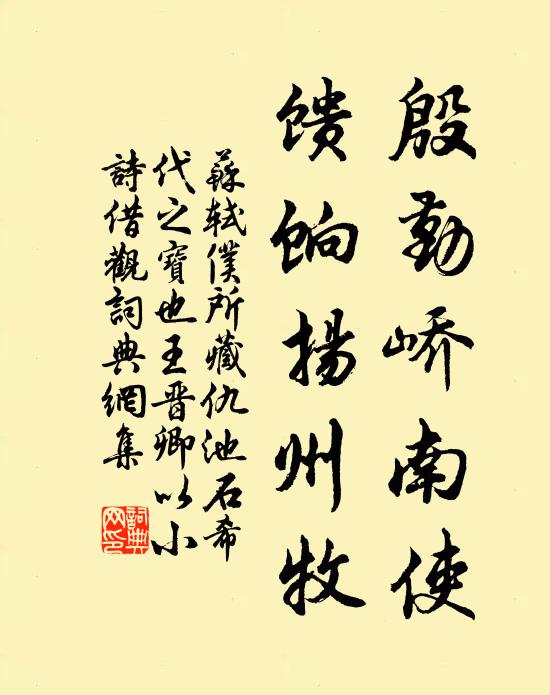 殷勤峤南使
馈饷揚州牧
蘇軾僕所藏仇池石希
代之寶也王晋卿以小
詩借觀詞典網集
詞典
网印